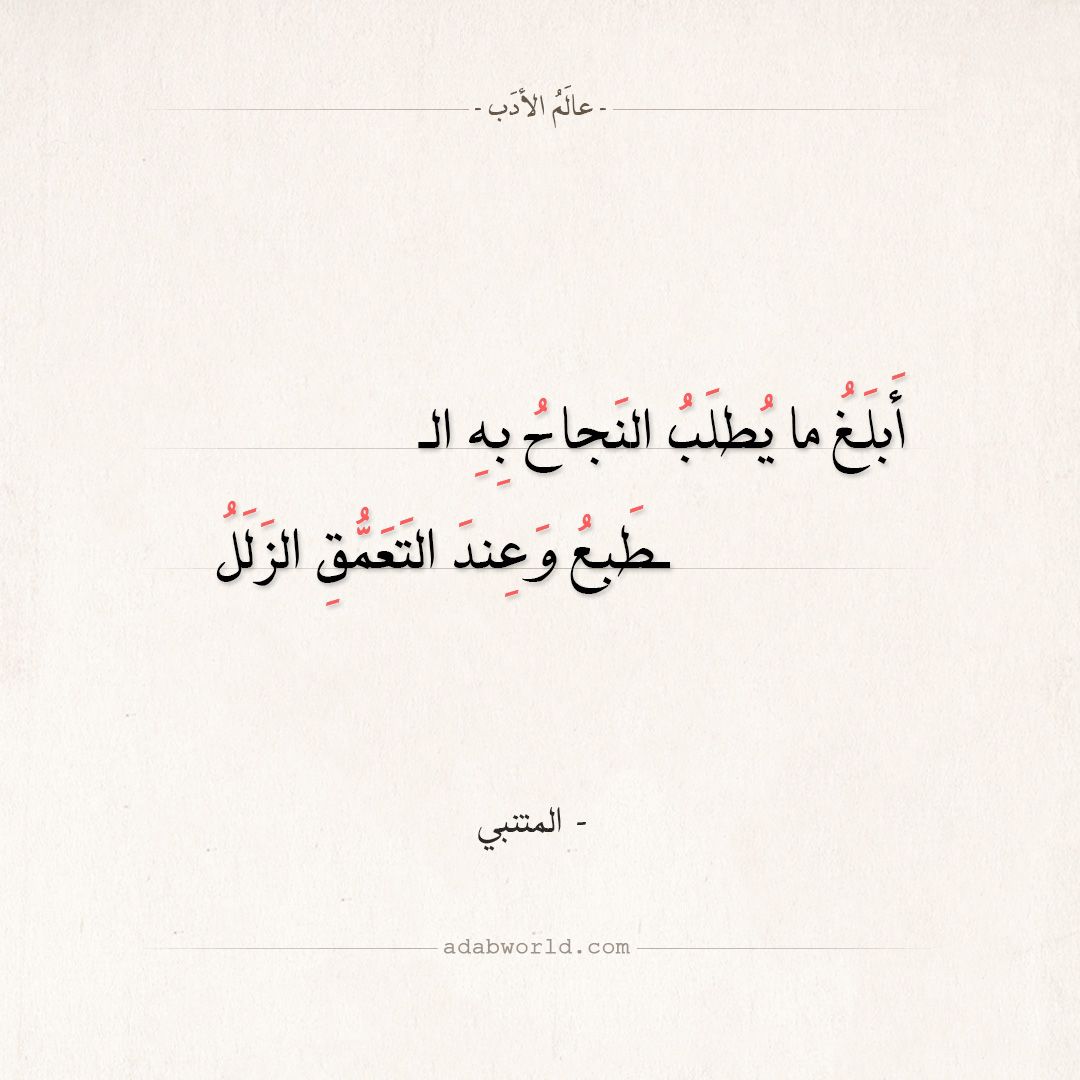 - عالَمُ الأدَب -
أَبلَغُ ما يُطلَبُ النَجاحُ بِهِ الـ
ـطَبعُ وَعِندَ التَعَمُّقِ الزَلَلُ
- المتنبي
adabworld.com